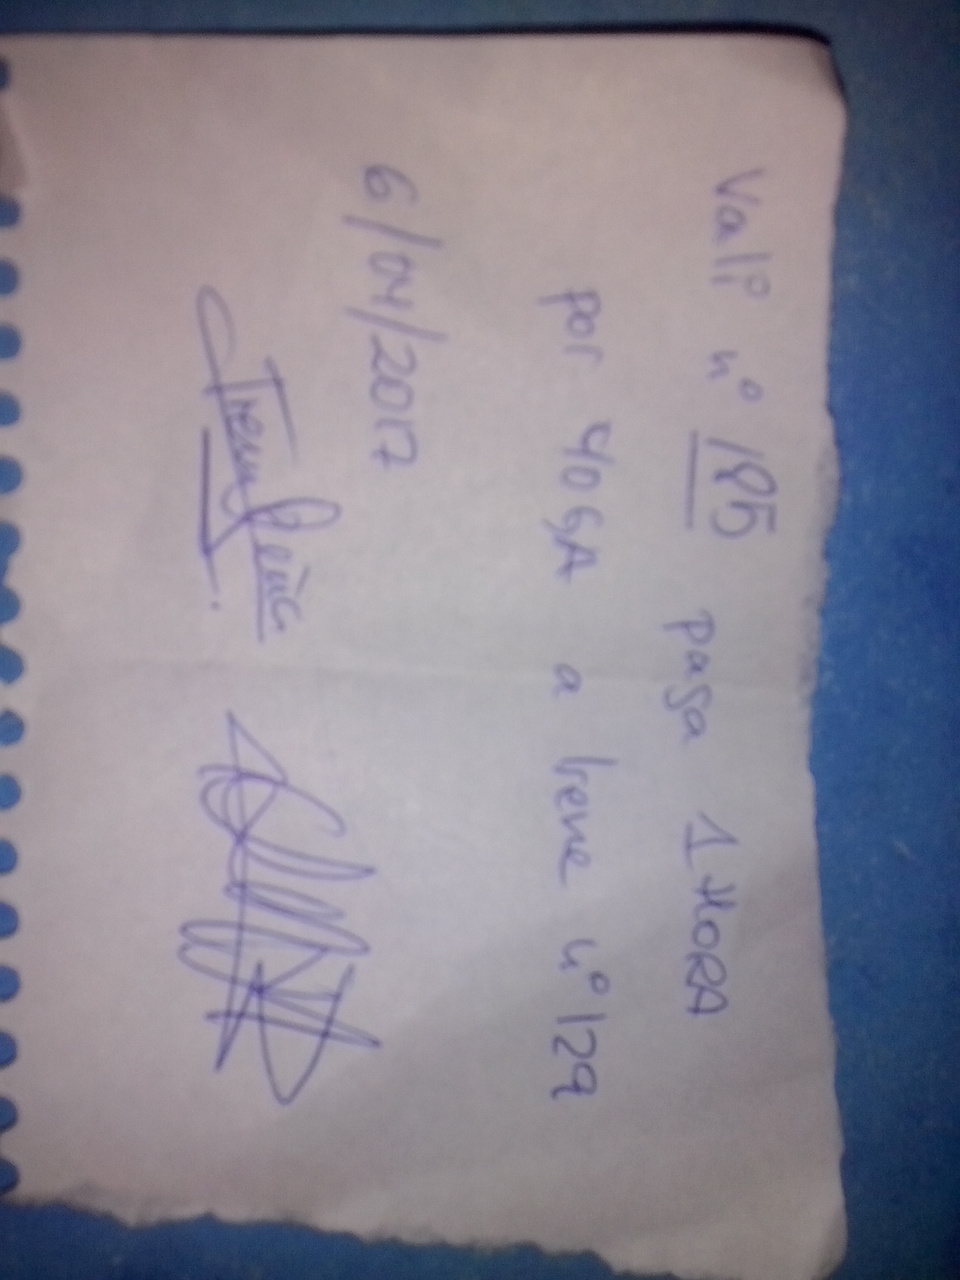 Vali nº 185 paga 1 HORA
por YOGA a Irene nº 129
6/04/2017
Irene